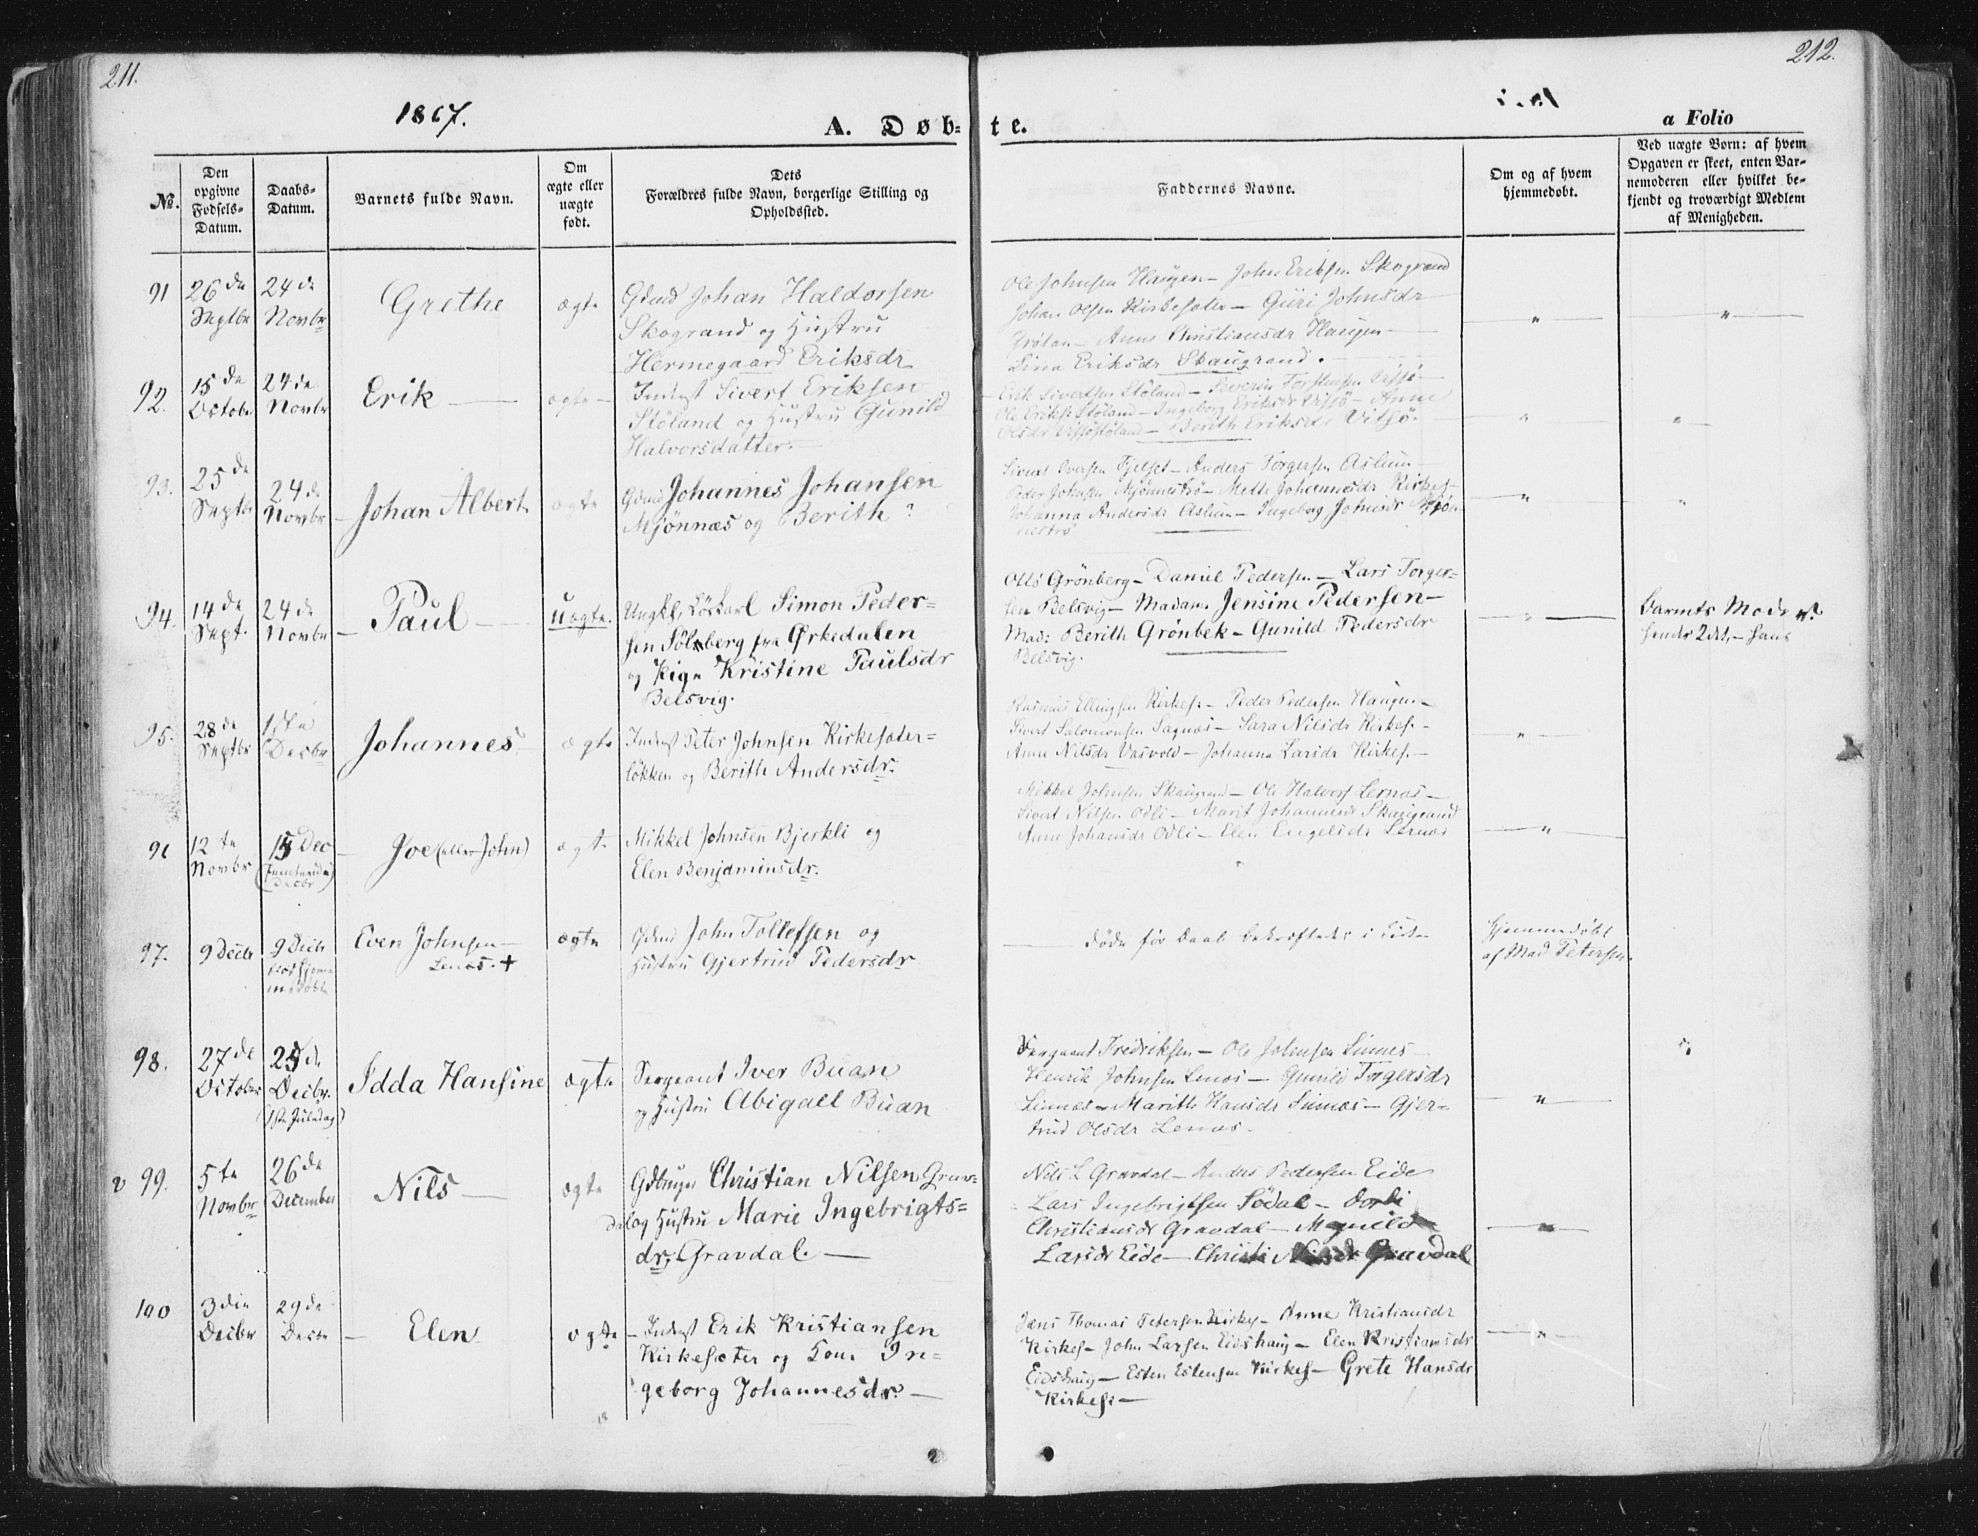 211.
212.
1867.
A. Døb-
te.
a Folio
No.
Den opgivne Fødsels-Datum.
Daabs-Datum.
Barnets fulde Navn.
Om ægte eller uægte født.
Dets Forældres fulde Navn, borgerlige Stilling og Opholdssted.
Faddernes Navne.
Om og af hvem hjemmedøbt.
Ved uægte Børn: af hvem Opgaven er skeet, enten Barnemoderen eller hvilket bekjendt og troværdigt Medlem af Menigheden.
91 26de Septbr 24de Novbr Grethe ægte
Gdmd Johan Haldorsen
Skogrand og Hustru
Hermegaard Eriksdr
Ole Johnsen Haugen - John Eriksen Skogrand
Johan Olsen Kirkesæter - Guri Johnsdr
Grøtan - Anne Christiansdr Haugen
Lina Eriksdr Skaugrand.
92. 15de Octobr 24de Novbr Erik ægte -
Inderst Sivert Eriksen
Støland og Hustru Gunild
Halvorsdatter.
Erik Sivertsen Støland - Severin Torstensen
Ole Eriks. Støland - Ingeborg Eriksdr - Anne
Olsdr - Berith Eriksdr Vitsø.
93. 25de Septbr 24de Novbr Johan Albert ægte
Gdmd Johannes Johansen
Mjønnæs og Berith
Sivert Iversen Fjelset - Anders Torgersen Aslum
Peder Johnsen - Mette Johannesdr Kirkes.
Johanna Andersdr Aslum - Ingeborg Johnsdr
94. 14de Sept. 24de Novbr Paul uægte.
Ungk. Simon Peder-
sen Sølsberg fra Ørkedalen
og Pige Kristine Paulsdr
Belsvig.
Otto Grønberg - Daniel Pedersen - Lars Torger-
sen Belsvig - Madam Jensine Pedersen -
Mad: Berith Grønbek - Gunild Pedersdr
Belsvig.
Barnets Moder
hendes 2det, - hans
95. 28de Septbr 1ste Decbr Johannes ægte
Inderst Peter Johnsen Kirkesæter-
løkken og Berith Andersdr.
Rasmus Ellingsen Kirkes. - Peder Pedersen Haugen -
Sivert Salomonsen Sagnæs - Sara Nilsdr Kirkes. -
Anne Nilsdr Vasvold - Johanna Larsdr Kirkes. -
96 12te Novbr 15 Dec (Femtende Decbr) Joe (eller John) ægte
Mikkel Johnsen Bjerkli og
Elen Benjaminsdr.
Mikkel Johnsen Skaugrand - Ole Halvors. Lernæs -
Sivert Nilsen Odli - Marit Johannesdr Skaugrand
Anne Johansdr Odli - Elen Engelsdr Lernæs
97. 9 Decbr 9 Decbr Even Johnsen
Lenæs. + ægte
Gdmd John Tollefsen og
Hustru Gjertrud Pedersdr
døde før Daab bekræftedes i Kirke
Hjemmedøbt
af Mad Petersen.
98. 27de October 25de Decbr. (1ste Juledag) Idda Hansine ægte
Sergeant Iver Buan
og Hustru Abigael Buan
Sergeant Fredriksen - Ole Johnsen Sinnes
Henrik Johnsen Lenæs - Gunild Torgersdr
Sinnæs - Marith Hansdr Sinnæs - Gjer-
trud Olsdr Lenæs.
99. 5te Novbr 26de December Nils ægte
Gdbruger Christian Nilsen Grav-
dal og Hustru Marie Ingebrigts-
dr. Gravdal.
Nils L Gravdal - Anders Pedersen Eide
Lars Ingebrigtsen Sødal - Dorti
Christiansdr Gravdal - Magnild
Larsdr Eide - Christi Nilsdr Gravdal
100 3die Decbr 29de Decbr Elen ægte
Inderst Erik Kristiansen
Kirkesæter og Kone In-
geborg Johannesdr.
Jens Thomas Petersen Kirkes. - Anne Kristiansdr
Kirkes. - John Larsen Eidshaug - Elen Kristiansdr
Eidshaug - Esten Estensen Kirkes. - Grete Hansdr
Kirkes. -